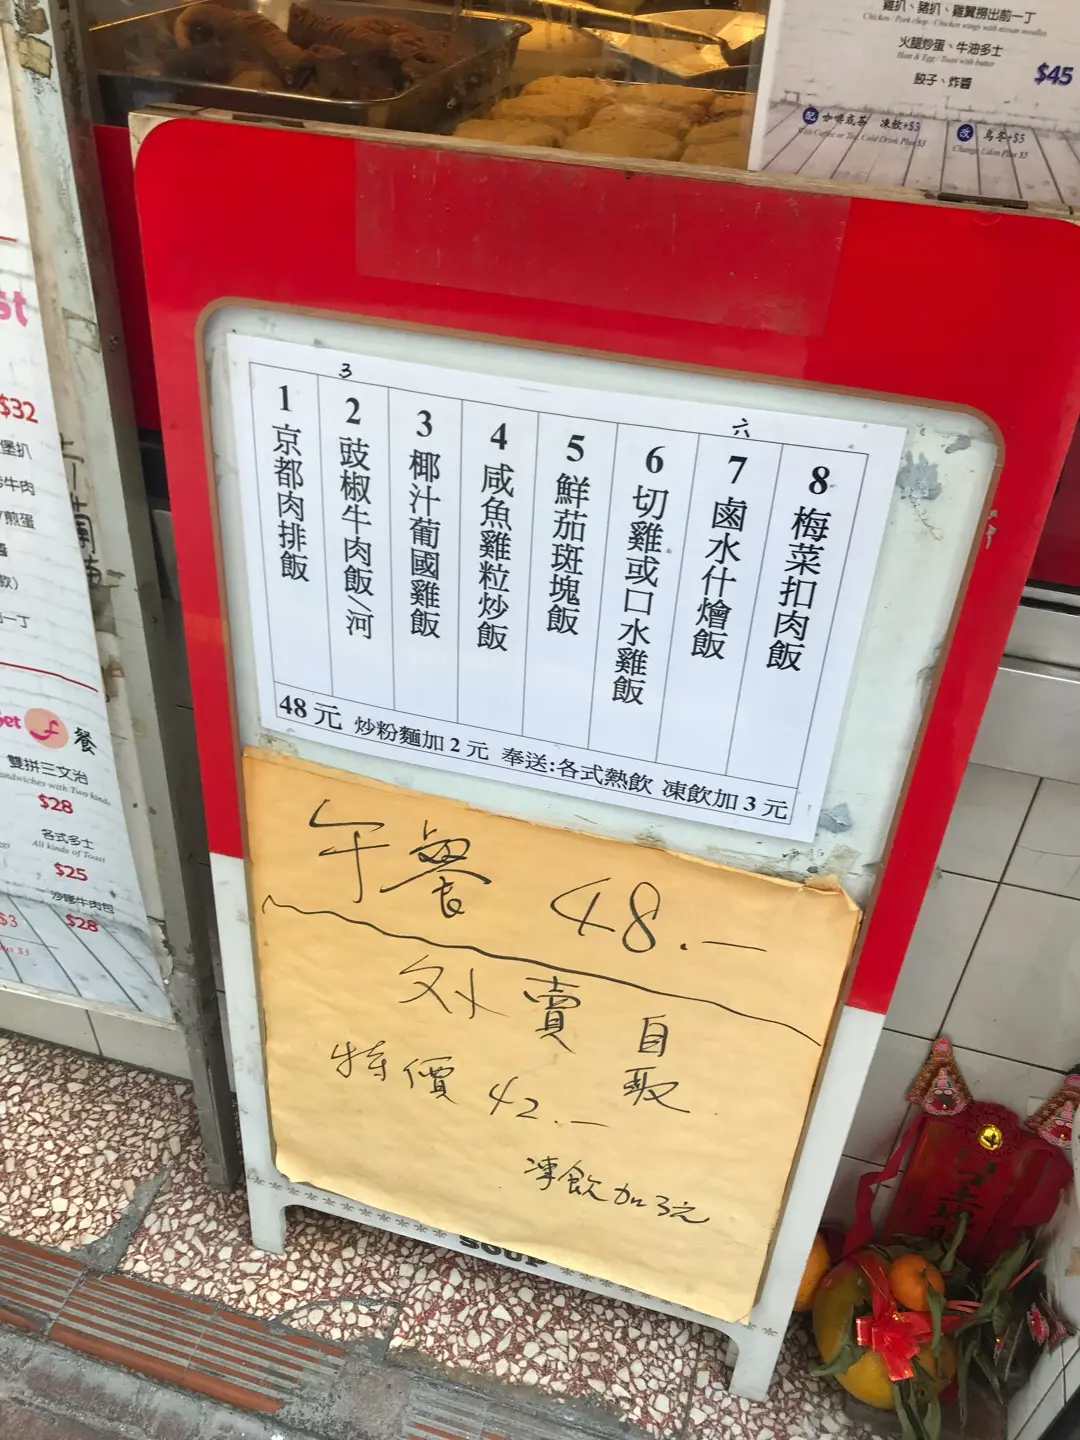 雞扒、豬扒、雞翼撈出前一丁
Chicken / Pork chop / Chicken wings with nissan noodles
火腿炒蛋、牛油多士
Ham & Egg / Toast with butter
$45
餃子、炸醬
配 咖啡或茶 凍飲+$3
With Coffee or Tea, Cold Drink Plus $3
改 烏冬+$5
Change Udon Plus $5
3
六
1 京都肉排飯
2 豉椒牛肉飯/河
3 椰汁葡國雞飯
4 咸魚雞粒炒飯
5 鮮茄斑塊飯
6 切雞或口水雞飯
7 鹵水什燴飯
8 梅菜扣肉飯
48元 炒粉麵加2元 奉送:各式熱飲 凍飲加3元
午餐 48.—
外賣 自取
特價 42.—
凍飲加3元
SOUP
st
$32
堡扒
牛肉
煎蛋
飲)
一丁
set f 餐
雙拼三文治
Sandwiches with Two kinds
$28
各式多士
All kinds of Toast
$25
沙嗲牛肉包
$28
$3